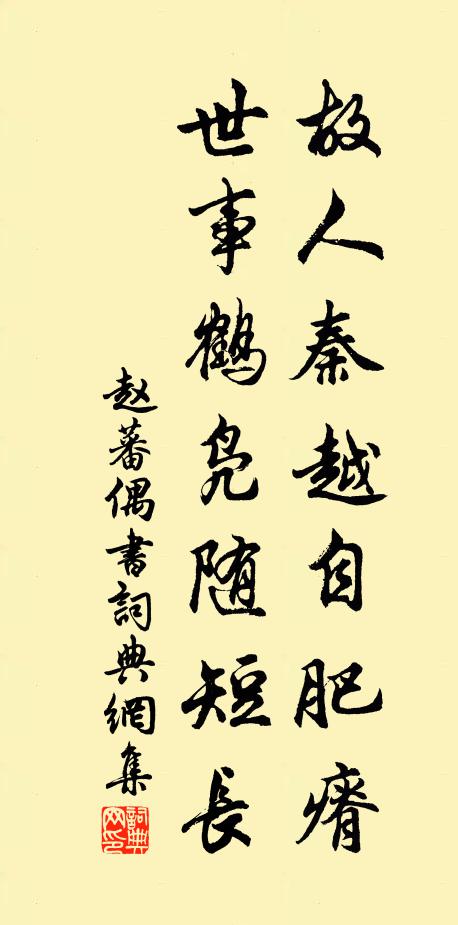 故人秦越自肥瘠
世事鹤凫随短長
赵蕃偶書詞典網集
詞典網印